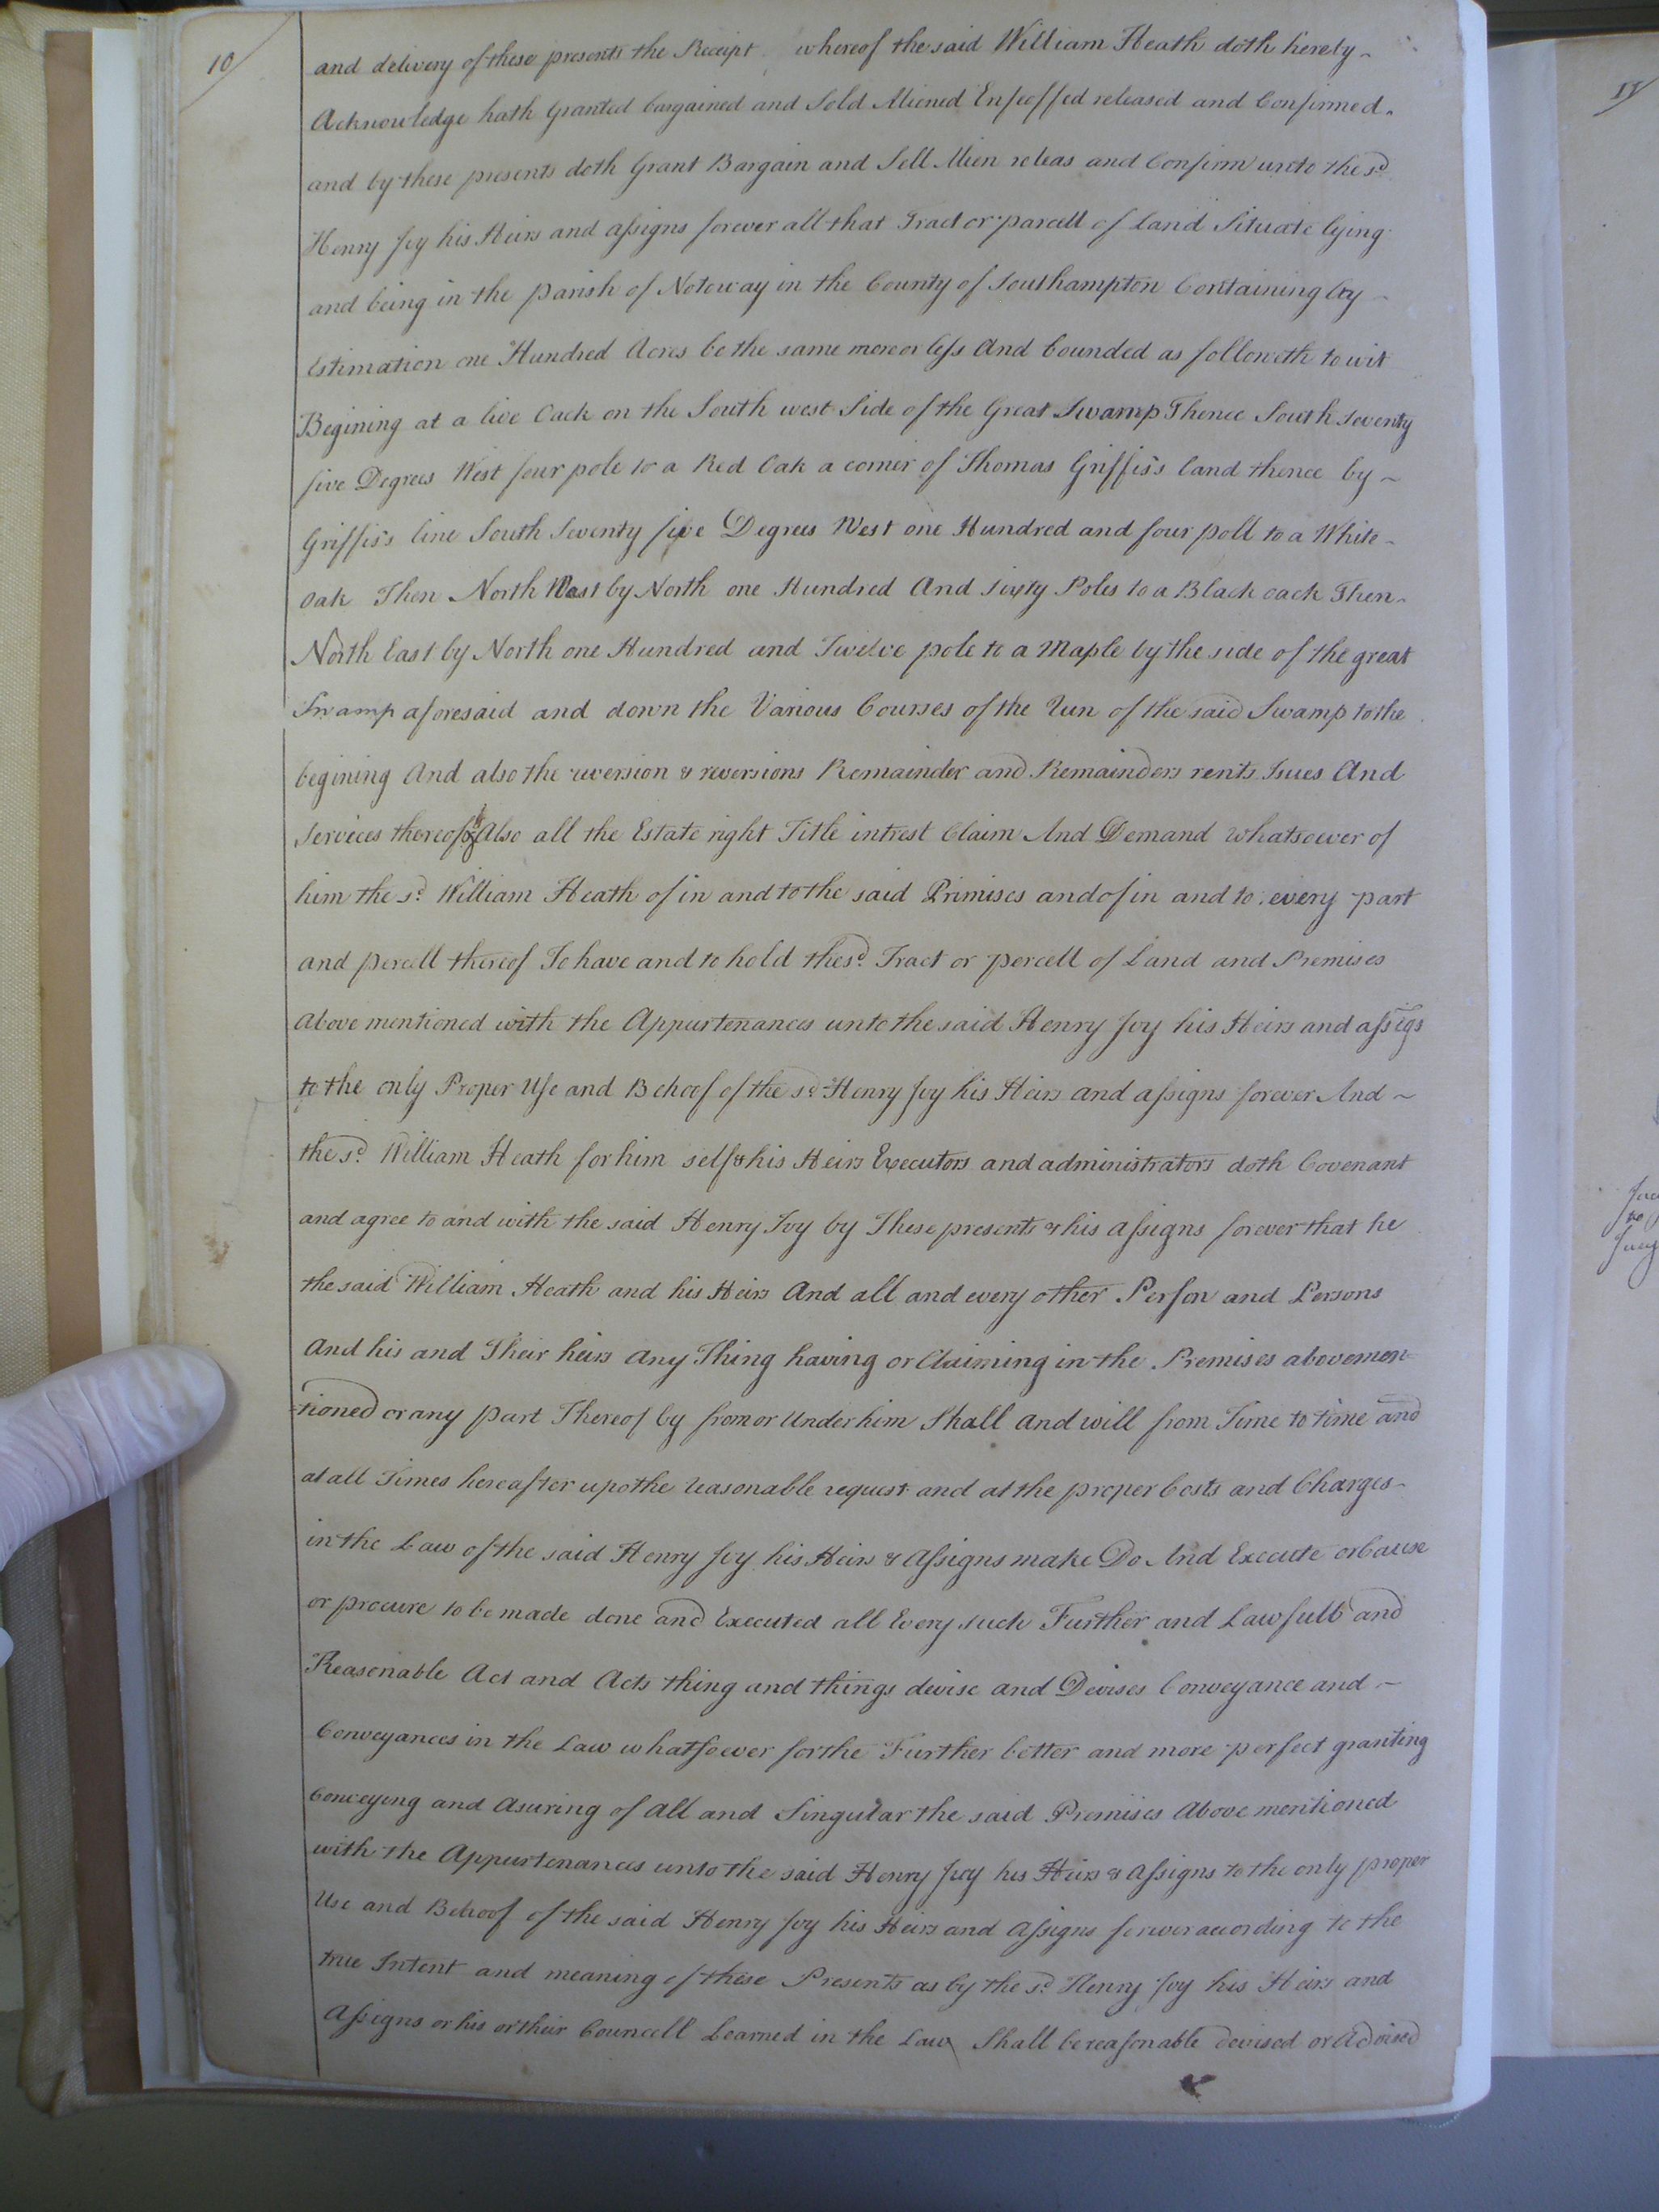 10/
and delivery of these presents the Receipt whereof the said William Heath doth hereby ~
Acknowledge hath Granted bargained and Sold Aliened Enfeoffed released and Confirmed.
and by these presents doth Grant Bargain and Sell Alien releas and Confirm unto the sd
Henry Ivy his Heirs and assigns forever all that Tract or parcell of Land Situate lying
and being in the parish of Notoway in the County of Southampton Containing by ~
Estimation one Hundred Acres be the same more or less And bounded as followeth to wit
Begining at a live Oack on the South west Side of the Great Swamp Thence South Seventy
five Degrees West four pole to a Red Oak a corner of Thomas Griffis's land thence by ~
Griffis's line South Seventy five Degrees West one Hundred and four poll to a White ~
Oak Then North West by North one Hundred And sixty Poles to a Black oack Then ~
North East by North one Hundred and Twelve pole to a Maple by the side of the great
Swamp aforesaid and down the Various Courses of the Run of the said Swamp to the
begining And also the reversion & reversions Remainder and Remainders rents Isues And
Services thereof & Also all the Estate right Title intrest Claim And Demand whatsoever of
him the sd. William Heath of in and to the said Primises and of in and to every part
and percell thereof To have and to hold the sd. Tract or percell of Land and Premises
Above mentioned with the Appurtenances unto the said Henry Ivy his Heirs and assigs
to the only Proper Use and Behoof of the sd Henry Ivy his Heirs and assigns forever And ~
the sd. William Heath for him self & his Heirs Executors and administrators doth Covenant
and agree to and with the said Henry Ivy by These presents & his assigns forever that he
the said William Heath and his Heirs And all and every other Person and Persons
And his and Their heirs Any Thing having or Claiming in the Premises abovemen
=tioned or any part Thereof by from or Under him Shall and will from Time to time and
at all Times hereafter upo the reasonable request and at the proper Costs and Charges ~
in the Law of the said Henry Ivy his Heirs & Assigns make Do And Execute or Cause
or procure to be made done and Executed all Every such Further and Lawfull and
Reasonable Act and Acts thing and things devise and Devises Conveyance and ~
Conveyances in the Law whatsoever for the Further better and more perfect granting
Conveying and Asuring of All and Singular the said Premises Above mentioned
with the Appurtenances unto the said Henry Ivy his Heirs & Assigns to the only proper
Use and Behoof of the said Henry Ivy his Heirs and Assigns forever according to the
true Intent and meaning of these Presents as by the sd. Henry Ivy his Heirs and
Assigns or his or their Councell Learned in the Law Shall be reasonable devised or Advised
11/